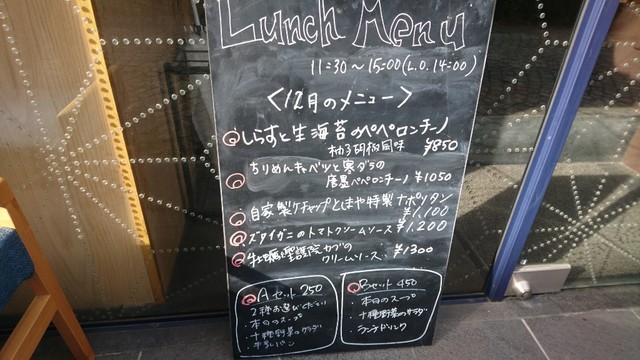 Lunch Menu
11:30〜15:00(L.O.14:00)
<12月のメニュー>
しらすと生海苔のペペロンチーノ
柚子胡椒風味 ¥850
ちりめんキャベツと寒ダラの
唐墨ペペロンチーノ ¥1050
自家製ケチャップとほや特製ナポリタン
¥1,100
ズワイガニのトマトクリームソース ¥1,200
牡蠣と聖護院カブの
クリームソース ¥1300
Aセット 250
2種お選びください
・本日のスープ
・十種野菜のサラダ
・手作りパン
Bセット 450
・本日のスープ
・十種野菜のサラダ
・ランチドリンク